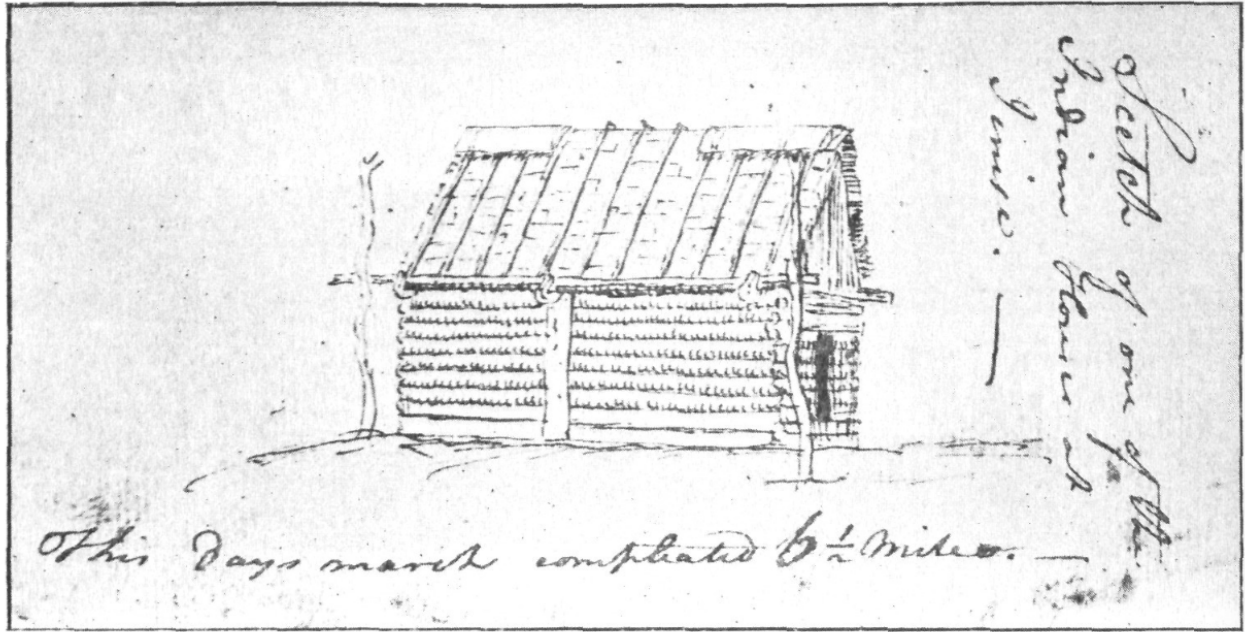 Scetch of one of the
Indian House at
This Days march compleated 6 ½ Miles. —